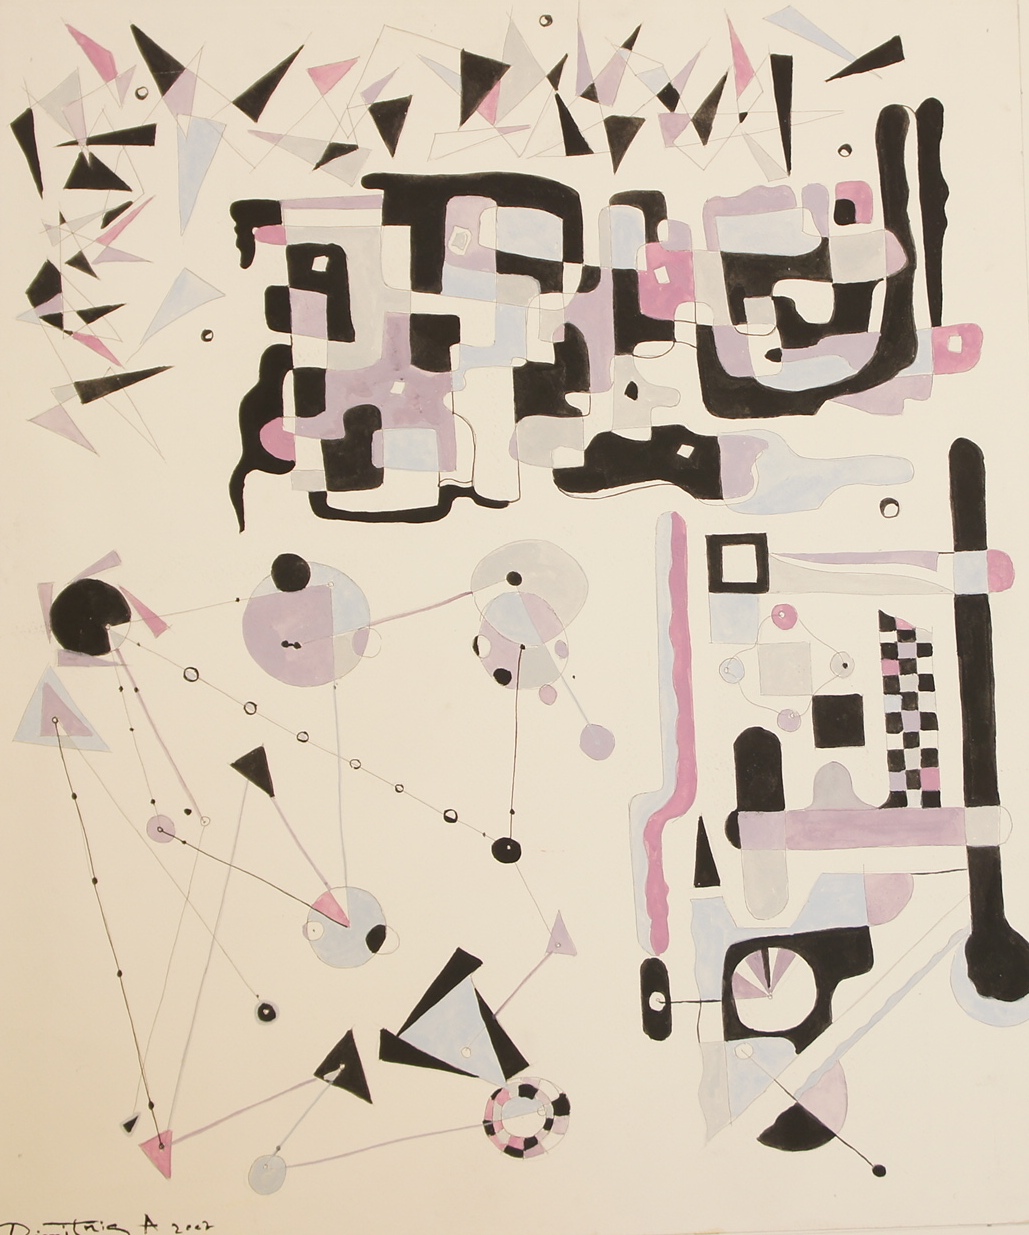 Dimitris A 2007